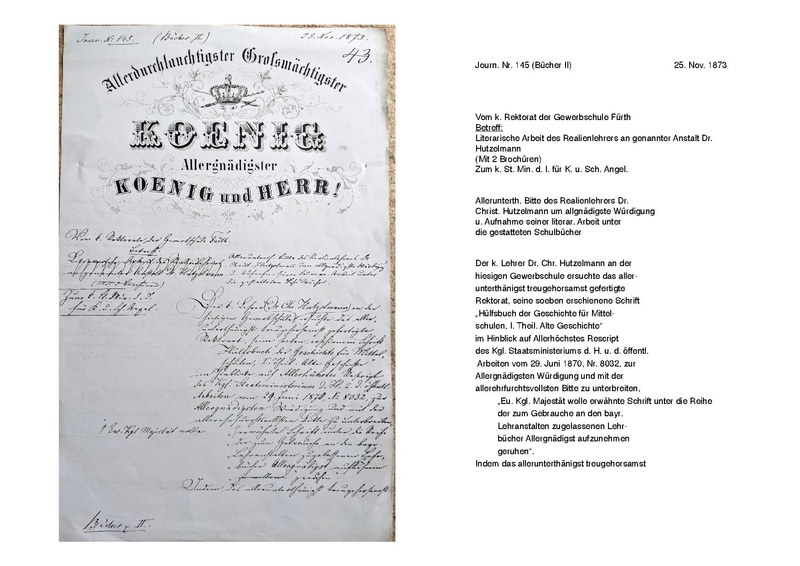 Journ. Nr. 145. (Bücher II.) 25. Nov. 1873.
43.
Allerdurchlauchtigster Grofsmächtigster
KOENIG
Allergnädigster
KOENIG und HERR!
Vom k. Rektorate der Gewerbschule Fürth
Betreff:
(Mit 2 Brochüren)
Zum k. St. Min. d. I.
für K. u. Sch. Angel.
Allerunterth. Bitte des Realienlehrers Dr.
Christ. Hutzelmann um allgnädigste Würdigung
u. Aufnahme seiner literar. Arbeit unter
die gestatteten Schulbücher
Der k. Lehrer Dr. Chr. Hutzelmann an der
hiesigen Gewerbschule ersuchte das aller-
unterthänigst treugehorsamst gefertigte
Rektorat, seine soeben erschienene Schrift
„Hülfsbuch der Geschichte für Mittel-
schulen, I. Theil. Alte Geschichte"
im Hinblick auf Allerhöchstes Rescript
des Kgl. Staatsministeriums d. H. u. d. öffentl.
Arbeiten vom 29. Juni 1870, Nr. 8032, zur
Allergnädigsten Würdigung und mit der
allerehrfurchtsvollsten Bitte zu unterbreiten,
Eu. Kgl. Majestät wolle
erwähnte Schrift unter die Reihe
der zum Gebrauche an den bayr.
Lehranstalten zugelassenen Lehr-
bücher Allergnädigst aufzunehmen
geruhen
Indem das allerunterthänigst treugehorsamst
Bücher II.
Journ. Nr. 145 (Bücher II) 25. Nov. 1873
Vom k. Rektorat der Gewerbschule Fürth
Betreff:
Literarische Arbeit des Realienlehrers an genannter Anstalt Dr.
Hutzelmann
(Mit 2 Brochüren)
Zum k. St. Min. d. I. für K. u. Sch. Angel.
Allerunterth. Bitte des Realienlehrers Dr.
Christ. Hutzelmann um allgnädigste Würdigung
u. Aufnahme seiner literar. Arbeit unter
die gestatteten Schulbücher
Der k. Lehrer Dr. Chr. Hutzelmann an der
hiesigen Gewerbschule ersuchte das aller-
unterthänigst treugehorsamst gefertigte
Rektorat, seine soeben erschienene Schrift
„Hülfsbuch der Geschichte für Mittel-
schulen, I. Theil. Alte Geschichte"
im Hinblick auf Allerhöchstes Rescript
des Kgl. Staatsministeriums d. H. u. d. öffentl.
Arbeiten vom 29. Juni 1870, Nr. 8032, zur
Allergnädigsten Würdigung und mit der
allerehrfurchtsvollsten Bitte zu unterbreiten,
„Eu. Kgl. Majestät wolle erwähnte Schrift unter die Reihe
der zum Gebrauche an den bayr.
Lehranstalten zugelassenen Lehr-
bücher Allergnädigst aufzunehmen
geruhen".
Indem das allerunterthänigst treugehorsamst